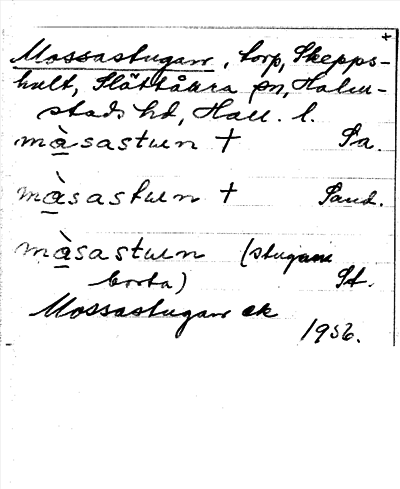 +
Mossastugan, torp, Skepps-
hult, Slättåkra sn, Halm-
stads hd, Hall. l.
màsastuɯn † Sa.
màsastuɯn † Sand.
màsastuɯn (stugan
borta) St.
Mossastugan ek
1956.